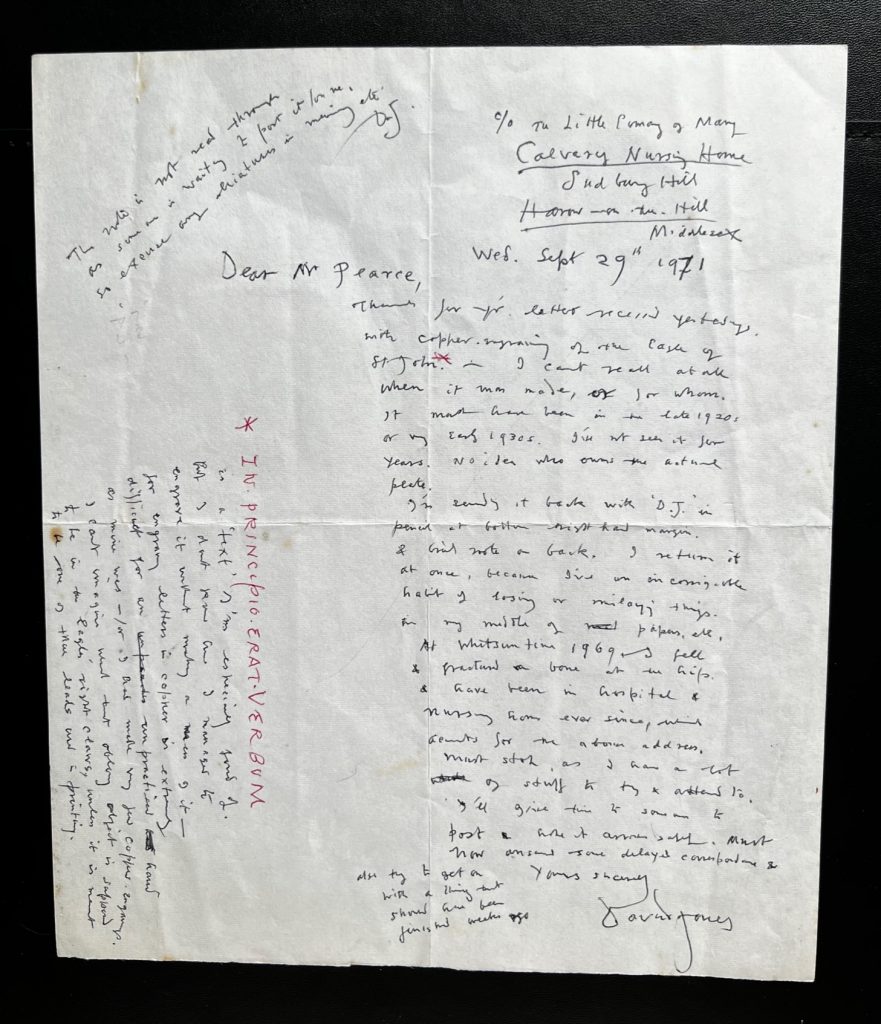 c/o The Little Company of Mary
Calvary Nursing Home
Sudbury Hill
Harrow-on-the-Hill
Middlesex
Wed. Sept 29th 1971
Dear Mr Pearce,
Thanks for yr. letter received yesterday.
with copper-engraving of the Eagle of
St John.* – I can't recall at all
when it was made, or for whom.
It must have been in the late 1920s
or very early 1930s. I've not seen it for
years. No idea who owns the actual
plate.
I'm sending it back with 'D.J.' in
pencil at bottom right hand margin.
& brief note on back. I return it
at once, because I've an incorrigible
habit of losing or mislaying things.
in my middle of papers, etc.
At Whitsun time 1969 I fell
& fractured a bone at the hip.
& have been in hospital &
nursing home ever since, which
accounts for the above address.
Must stop, as I have a lot
of stuff to try & attend to.
I'll give this to someone to
post & hope it arrives safely. Must
now answer some delayed correspondence &
also try to get on
with a thing that
should have been
finished weeks ago
Yours sincerely
David Jones
* IN·PRINCIPIO·ERAT·VERBUM
is a 'text' I'm especially fond of.
But I don't know how I managed to
engrave it without making a mess of it –
for engraving letters in copper is extremely
difficult for an unpractised hand
as mine was – for I had made very few copper-engravings.
I can't imagine what that oblong object is supposed
to be in the Eagle's right claws, unless it is meant
to be one of those leads used in printing.
This note is not read through
as someone is waiting to post it for me.
so excuse any obscurities in meaning etc.
D.J.